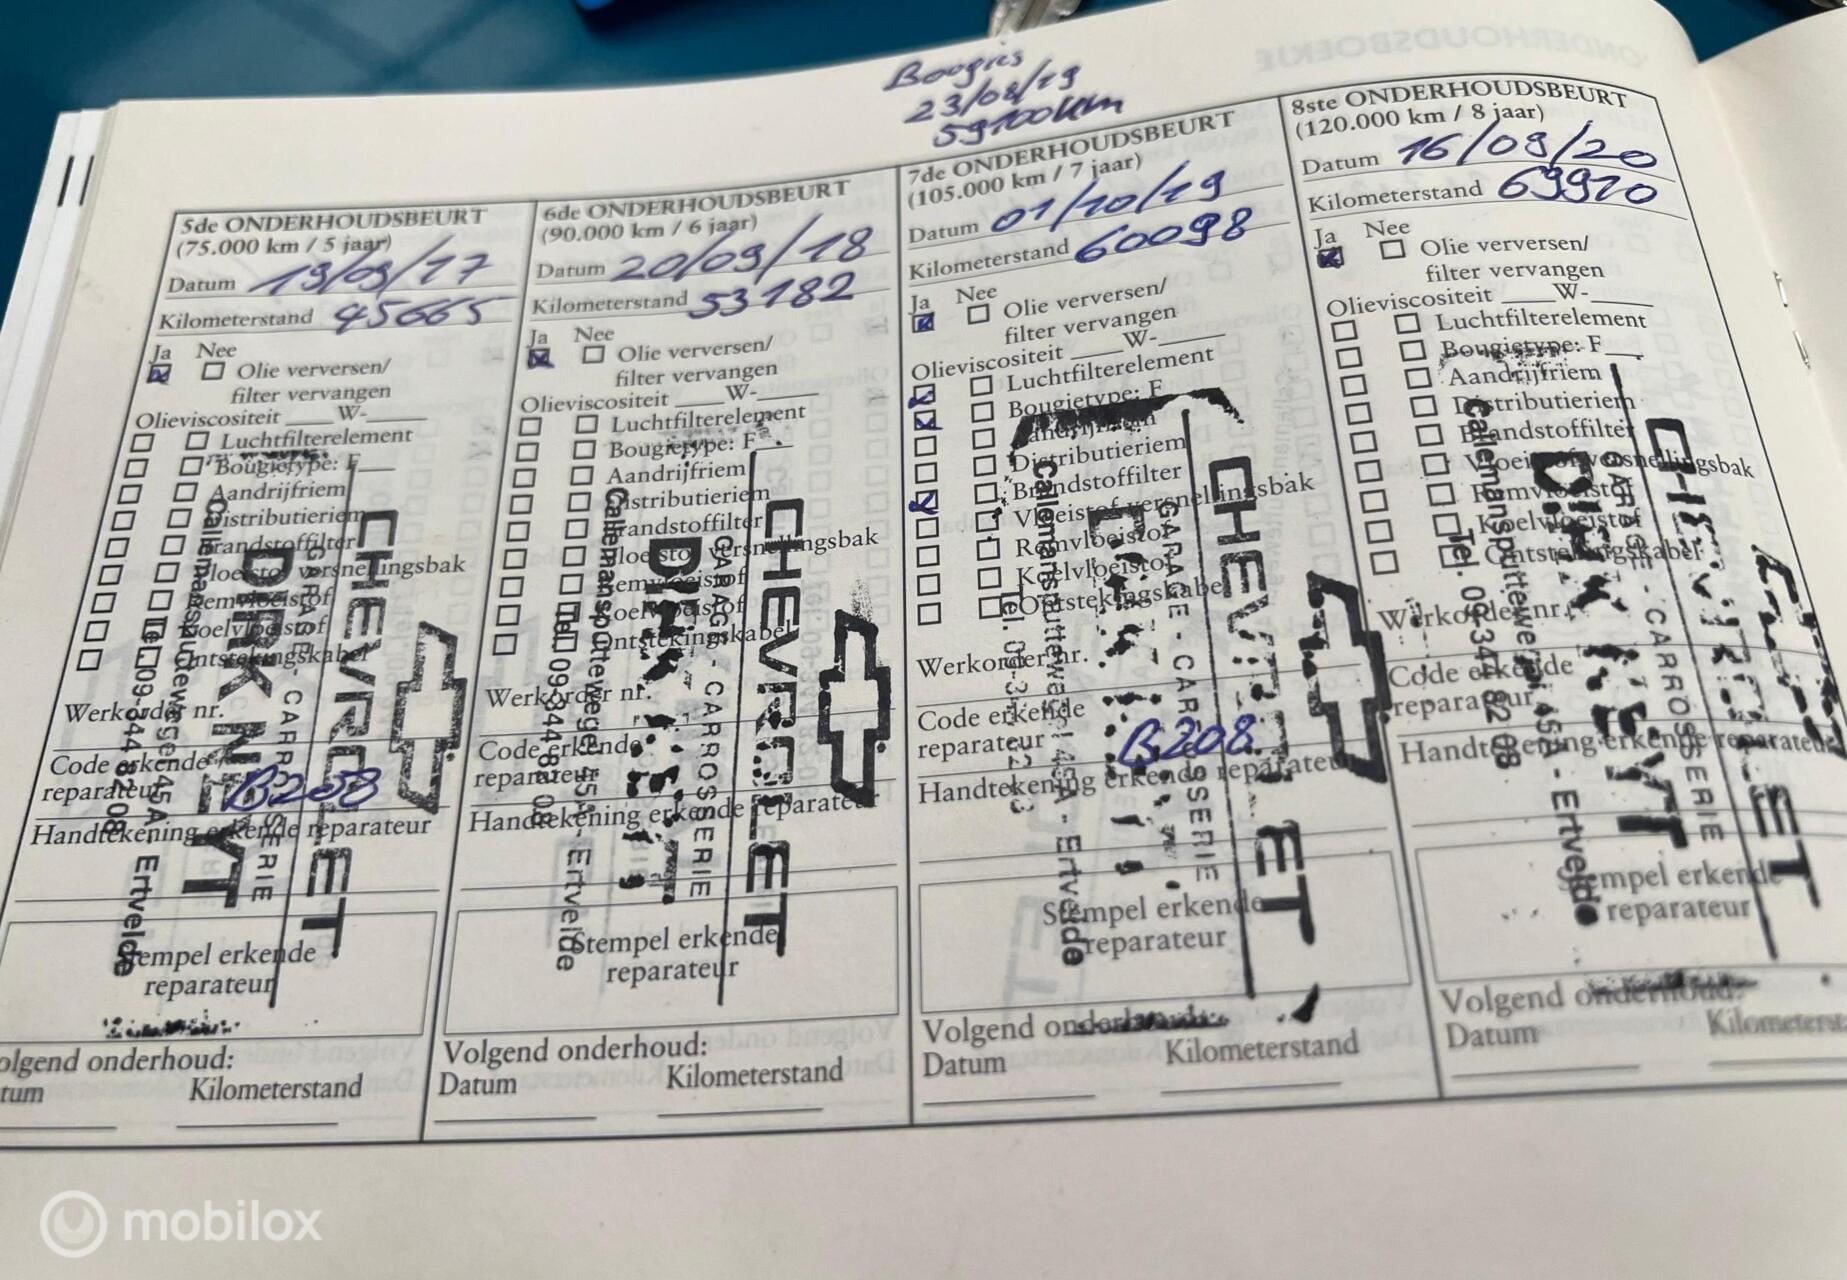 Bougies
23/08/19
59100km
5de ONDERHOUDSBEURT
(75.000 km / 5 jaar)
Datum 19/09/17
Kilometerstand 45665
Ja Nee
Olie verversen/
filter vervangen
Olieviscositeit ____W-____
Luchtfilterelement
Bougietype: F___
Aandrijfriem
Distributieriem
Brandstoffilter
Vloeistof versnellingsbak
Remvloeistof
Koelvloeistof
Ontstekingskabel
Werkorder nr.
Code erkende
reparateur B208
Handtekening erkende reparateur
Stempel erkende
reparateur
CHEVROLET
GARAGE - CARROSSERIE
DIRK NEYT
Callemansputtewege 45A - Ertvelde
Tel. 09-344 82 08
Volgend onderhoud:
Datum Kilometerstand
6de ONDERHOUDSBEURT
(90.000 km / 6 jaar)
Datum 20/09/18
Kilometerstand 53182
Ja Nee
Olie verversen/
filter vervangen
Olieviscositeit ____W-____
Luchtfilterelement
Bougietype: F___
Aandrijfriem
Distributieriem
Brandstoffilter
Vloeistof versnellingsbak
Remvloeistof
Koelvloeistof
Ontstekingskabel
Werkorder nr.
Code erkende
reparateur
Handtekening erkende reparateur
Stempel erkende
reparateur
CHEVROLET
GARAGE - CARROSSERIE
Callemansputtewege 45A - Ertvelde
Tel. 09-344 82 08
Volgend onderhoud:
Datum Kilometerstand
7de ONDERHOUDSBEURT
(105.000 km / 7 jaar)
Datum 01/10/19
Kilometerstand 60098
Ja Nee
Olie verversen/
filter vervangen
Olieviscositeit ____W-____
Luchtfilterelement
Bougietype: F
Aandrijfriem
Distributieriem
Brandstoffilter
Vloeistof versnellingsbak
Remvloeistof
Koelvloeistof
Ontstekingskabel
Werkorder nr.
Code erkende
reparateur B208
Handtekening erkende reparateur
Stempel erkende
reparateur
CHEVROLET
GARAGE - CARROSSERIE
Callemansputtewege 45A - Ertvelde
Volgend onderhoud:
Datum Kilometerstand
8ste ONDERHOUDSBEURT
(120.000 km / 8 jaar)
Datum 16/09/20
Kilometerstand 69910
Ja Nee
Olie verversen/
filter vervangen
Olieviscositeit ____W-____
Luchtfilterelement
Bougietype: F___
Aandrijfriem
Distributieriem
Brandstoffilter
Vloeistof versnellingsbak
Remvloeistof
Koelvloeistof
Ontstekingskabel
Werkorder nr.
Code erkende
reparateur
Handtekening erkende reparateur
Stempel erkende
reparateur
GARAGE - CARROSSERIE
Callemansputtewege 45A - Ertvelde
Tel. 09-344 82 08
Volgend onderhoud:
Datum
mobilox